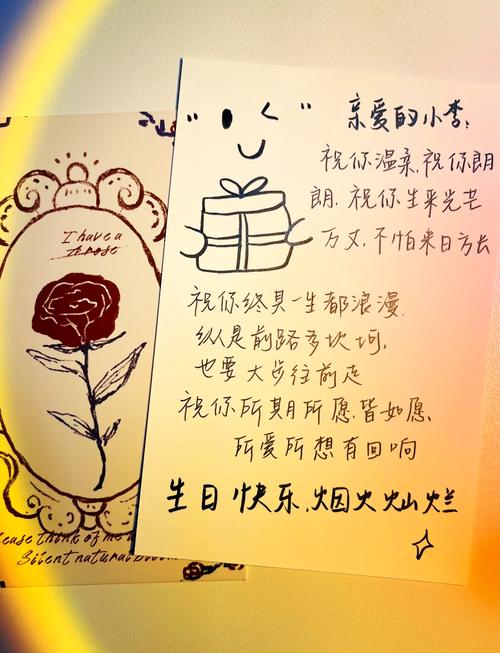 亲爱的小李:
祝你温柔,祝你朗
朗,祝你生来光芒
万丈,不怕来日方长
祝你终其一生都浪漫,
纵是前路多坎坷,
也要大步往前走
祝你所期所愿皆如愿、
所爱所想有回响
生日快乐,烟火灿烂
I have a
rose
ease think of me
Silent natural